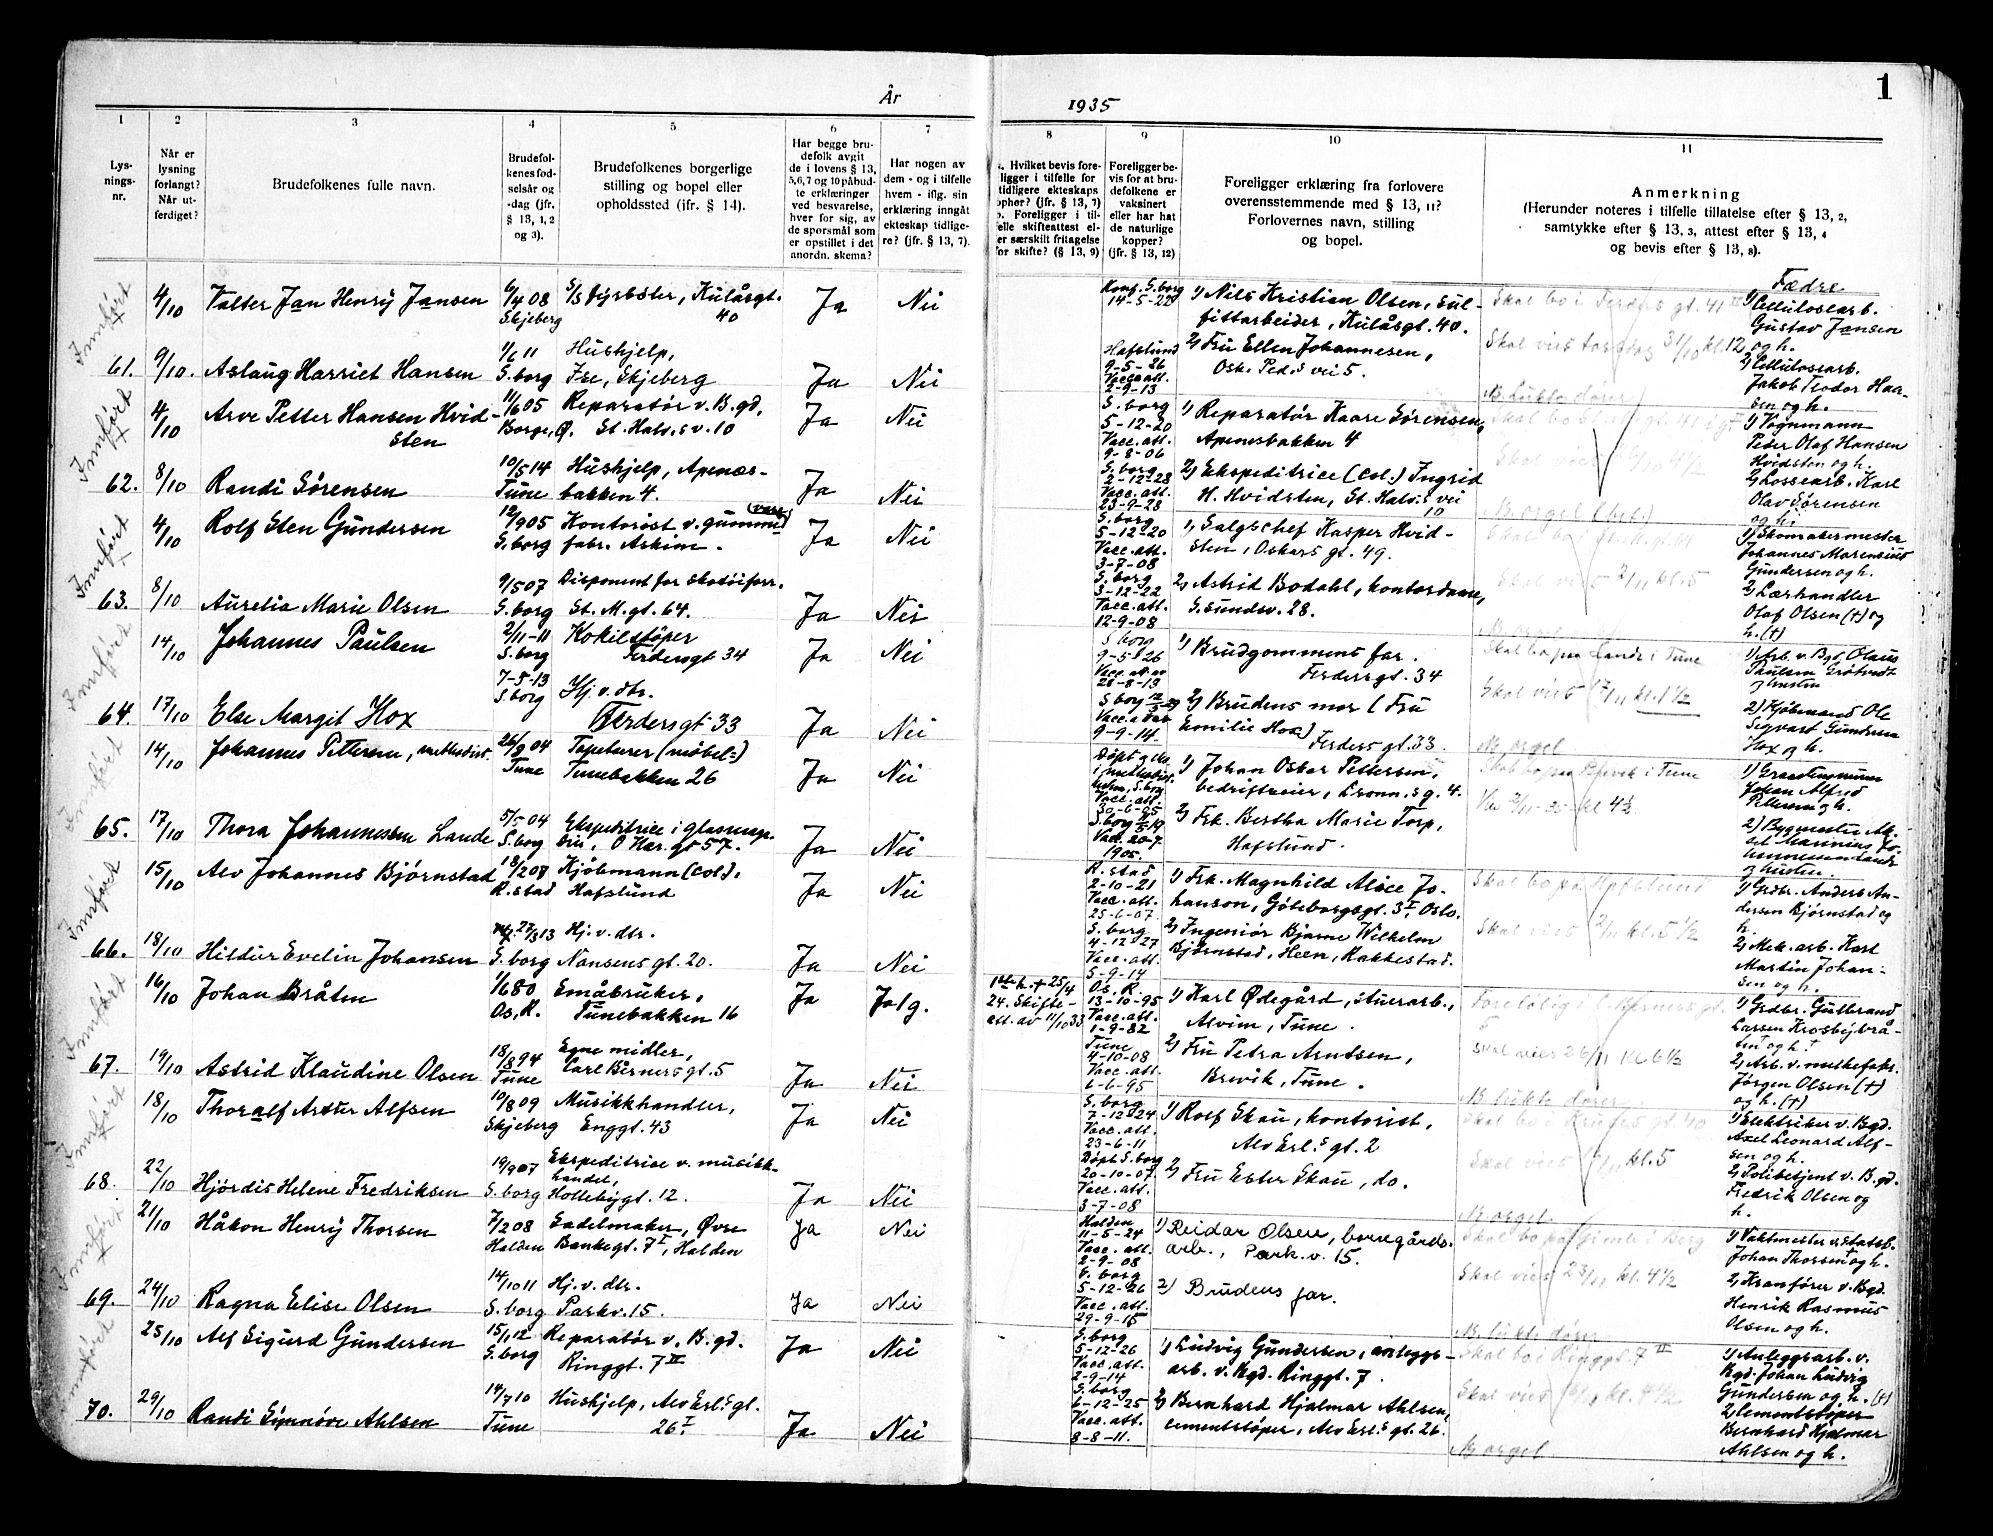 1
År 1935
1
2
3
4
5
6
7
8
9
10
11
Lys-
nings-
nr.
Når er
lysning
forlangt?
Når ut-
ferdiget?
Brudefolkenes fulle navn.
Brudefol-
kenes fød-
selsår og
-dag (jfr.
§ 13, 1, 2
og 3).
Brudefolkenes borgerlige
stilling og bopel eller
opholdssted (jfr. § 14).
Har begge bru-
defolk avgit
de i lovens § 13,
5,6,7 og 10 påbud-
te erklæringer
ved besvarelse,
hver for sig, av
de spørsmål som
er opstillet i det
anordn. skema?
Har nogen av
dem - og i tilfelle
hvem - iflg. sin
erklæring inngått
ekteskap tidlige-
re? (jfr. § 13, 7).
Hvilket bevis fore-
ligger i tilfelle for
tidligere ekteskaps
ophør? (jfr. § 13, 7)
Foreligger i til-
felle skifteattest el-
ler særskilt fritagelse
for skifte? (§ 13, 9)
Foreligger be-
vis for at bru-
defolkene er
vaksinert
eller har hat
de naturlige
kopper?
(jfr. § 13, 12)
Foreligger erklæring fra forlovere
overensstemmende med § 13, 11?
Forlovernes navn, stilling
og bopel.
Anmerkning
(Herunder noteres i tilfelle tillatelse efter § 13, 2,
samtykke efter § 13, 3, attest efter § 13, 4
og bevis efter § 13, 8).
Innført
61.
4/10
Valter Jan Henrij Jansen
6/4 08
Skjeberg
S/S Dyrbster, Kulåsgt.
40
Ja
Nei
Konf. S.borg
14-5-22
1) Nils Kristian Olsen, sul-
fittarbeider, Kulåsgt. 40.
Skal bo i Ferders gt. 41 III
Fædre
1) Cellulosearb.
Gustav Jansen
og h.
9/10.
Aslaug Harriet Hansen
1/6 11
S.borg
Hushjelp,
Ise, Skjeberg
Ja
Nei
Hafslund
9-5-26
Vacc.att.
2-9-13
2) Fru Ellen Johannesen,
Osk. Ped.s vei 5.
Skal vies torsdag 31/10 kl. 12
N. lukte dører
2) Cellulosearb.
Jakob Teodor Han-
sen og h.
Innført
62.
4/10
Arve Petter Hansen Hvid-
sten
11/6 05
Borge, Ø.
Reparatør v. B.gd,
St. Halv.s v. 10
Ja
Nei
S.borg
5-12-20
Vacc.att.
9-8-06
1) Reparatør Kaare Sørensen,
Apenesbakken 4
1) Vognmann
Peder Olaf Hansen
Hvidsten og h.
8/10
Randi Sørensen
10/5 14
Tune
Hushjelp, Apenæs-
bakken 4.
Ja
Nei
S.borg
2-12-28
Vacc.att.
23-9-28
2) Ekspeditrice (col.) Ingrid
H. Hvidsten, St. Halv.s vei
10
N. orgel (bet.)
2) Lossearb. Karl
Olav Sørensen
og h.
Innført
63.
4/10
Rolf Sten Gundersen
12/9 05
S.borg
Kontorist v. gummi
(vare)
fabr. Askim.
Ja
Nei
S.borg
5-12-20
Vacc.att.
3-7-08
1) Salgschef Kasper Hvid-
sten, Oskars gt. 49.
1) Skomakermester
Johannes Marensius
Gundersen og h.
8/10
Aurelia Marie Olsen
9/5 07
S.borg
Disponent for skotøiforr.
St. M. gt. 64.
Ja
Nei
S.borg
3-12-22
Vacc.att.
12-9-08
2) Astrid Bodahl, kontordame,
G.sundsv. 28.
Skal vies 2/11 kl. 5
N. orgel
2) Lærhandler
Olaf Olsen (†) og
h. (†)
Innført
64.
14/10
Johannes Paulsen
2/11-11
S.borg
Kokilstøper
Ferdersgt 34
Ja
Nei
S borg
9-5 26
28-8-13
1) Brudgommens far.
Ferdersgt. 34
Skal bo paa Lande i Tune
1) Arb. v. Bgd Olaus
Paulsen Grøtvedt
og hustru
17/10
Else Margit Hox
7-5-13
S.borg
Hj. v. dtr.
Ferdersgt 33
Ja
Nei
9-9-14.
2) Brudens mor (Fru
Emilie Hox)
Ferders gt. 33.
Skal vies 17/11 kl. 1 1/2
N. orgel
2) Kjøbmand Ole
Sigvart Gundersen
Hox og h.
Innført
65.
14/10
Johannes Pettersen, methodist.
26/9 04
Tune
Tapetserer (møbel-)
Tunebakken 26
Ja
Nei
Vacc. att.
30-6-05
1) Johan Oskar Pettersen,
bedriftseier, Kronn.s g. 4.
Skal bo paa Brevik i Tune
Johan Alfred
Pettersen og h.
17/10
Thora Johannessen Lande
5/5 04
S.borg
Ekspeditrice i glasmaga-
sin, O Har. gt 57.
Ja
Nei
Vacc. 20-7
1905.
2) Frk. Bertha Marie Torp,
Hafslund.
Vies 2/11-35 kl 4 1/2
2) Bygmester
og hustru.
Innført
66.
15/10
Alv Johannes Bjørnstad
18/2 08
R.stad
Kjøbmann (col),
Hafslund
Ja
Nei
R. stad
2-10-21
Vacc. att.
25-6-07
1) Frk. Magnhild Alice Jo-
hanson, Göteborgsgt. 3 I, Oslo.
Skal bo på Hafslund
1) Grdbr. Anders An-
dersen Bjørnstad og
h.
18/10
Hildur Evelin Johansen
27/3 13
S.borg
Hj. v. dtr.
Nansens gt. 20.
Ja
Nei
S. borg
4-12 27
Vacc. att.
5-9-14
2) Ingeniør Bjarne Wilhelm
Bjørnstad, Heen, Rakkestad.
Skal vies 2/11 kl. 5 1/2
2) Mek. arb. Karl
Martin Johan-
sen og h.
Innført
67.
16/10
Johan Bråten
1/6 80
Os, R.
Småbruker,
Tunebakken 16
Ja
Ja 1 g.
1ste h. † 25/4
24. Skifte-
att. av 11/10 33
Os. R.
13-10-95
Vacc. att.
1-9-82
1) Karl Ødegård, stuerarb.,
Alvim, Tune.
1) Grdbr. Gulbrand
Larsen Krosbybrå-
ten † og h. †
19/10
Astrid Klaudine Olsen
18/8 94
Tune
Egne midler,
Carl Berners gt. 5
Ja
Nei
Tune
4-10-08
Vacc. att.
6-6-95
2) Fru Petra Arntsen,
Brevik, Tune.
Skal vies 26/11 kl 6 1/2
N. lukte dører.
2) Arb. v. melkefabr.
Jørgen Olsen (†)
og h. (†)
Innført
68.
18/10
Thoralf Alfsen
10/8 09
Skjeberg
Musikkhandler,
Enggt. 43
Ja
Nei
S. borg
7-12-24
Vacc. att.
23-6-11
1) Rolf Skau, kontorist,
Alv Erl.s gt. 2
1) Elektriker v. Bgd.
Axel Leonard Alf-
sen og h.
22/10
Hjørdis Helene Fredriksen
19/9 07
S. borg
Ekspeditrice v. musikk-
handel,
Hollebygt. 12.
Ja
Nei
Døpt S. borg
20-10-07
Vacc. att.
3-7-08
2) Fru Ester Skau, do.
N. orgel.
2) Politibetjent v. B.gd.
Fredrik Olsen og
h.
Innført
69.
21/10
Håkon Henrij Thorsen
7/2 08
Halden
Sadelmaker, Øvre
Bankegt. 7 I, Halden
Ja
Nei
Halden
11-5-24
Vacc. att.
2-9-08
1) Reidar Olsen, borregårds-
arb., Park. v. 15.
1) Vaktmester v. statsb.
Johan Thorsen † og h.
24/10
Ragna Elise Olsen
14/10 11
S.borg
Hj. v. dtr.
Parkv. 15.
Ja
Nei
S. borg
5-12-26
Vacc. att.
29-9-15
2) Brudens far.
Skal vies 23/11 kl. 4 1/2
N. lukte dører
2) Kranfører v. Bgd.
Henrik Rasmus
Olsen og h.
Innført
70.
25/10
Alf Sigurd Gundersen
15/1 12
S.borg
Reparatør v. B.gd.
Ringgt. 7 II
Ja
Nei
S.borg
5-12-26
Vacc. att.
2-9-14
1) Ludvig Gundersen, anleggs-
arb. v. Bgd. Ringgt. 7.
Skal bo i Ringgt. 7 II
1) Anleggsarb. v.
Bgd. Johan Ludvig
Gundersen og h. (†)
29/10
Randi Synnøve Ahlsen
14/7 10
Tune
Hushjelp, Alv Erl.s gt.
26 I
Ja
Nei
S.borg
6-12-25
Vacc. att.
8-8-11.
2) Bernhard Hjalmar Ahlsen,
cementstøper, Alv Erl.s gt. 26.
N. orgel.
2) Cementstøper
Bernhard Hjalmar
Ahlsen og h.